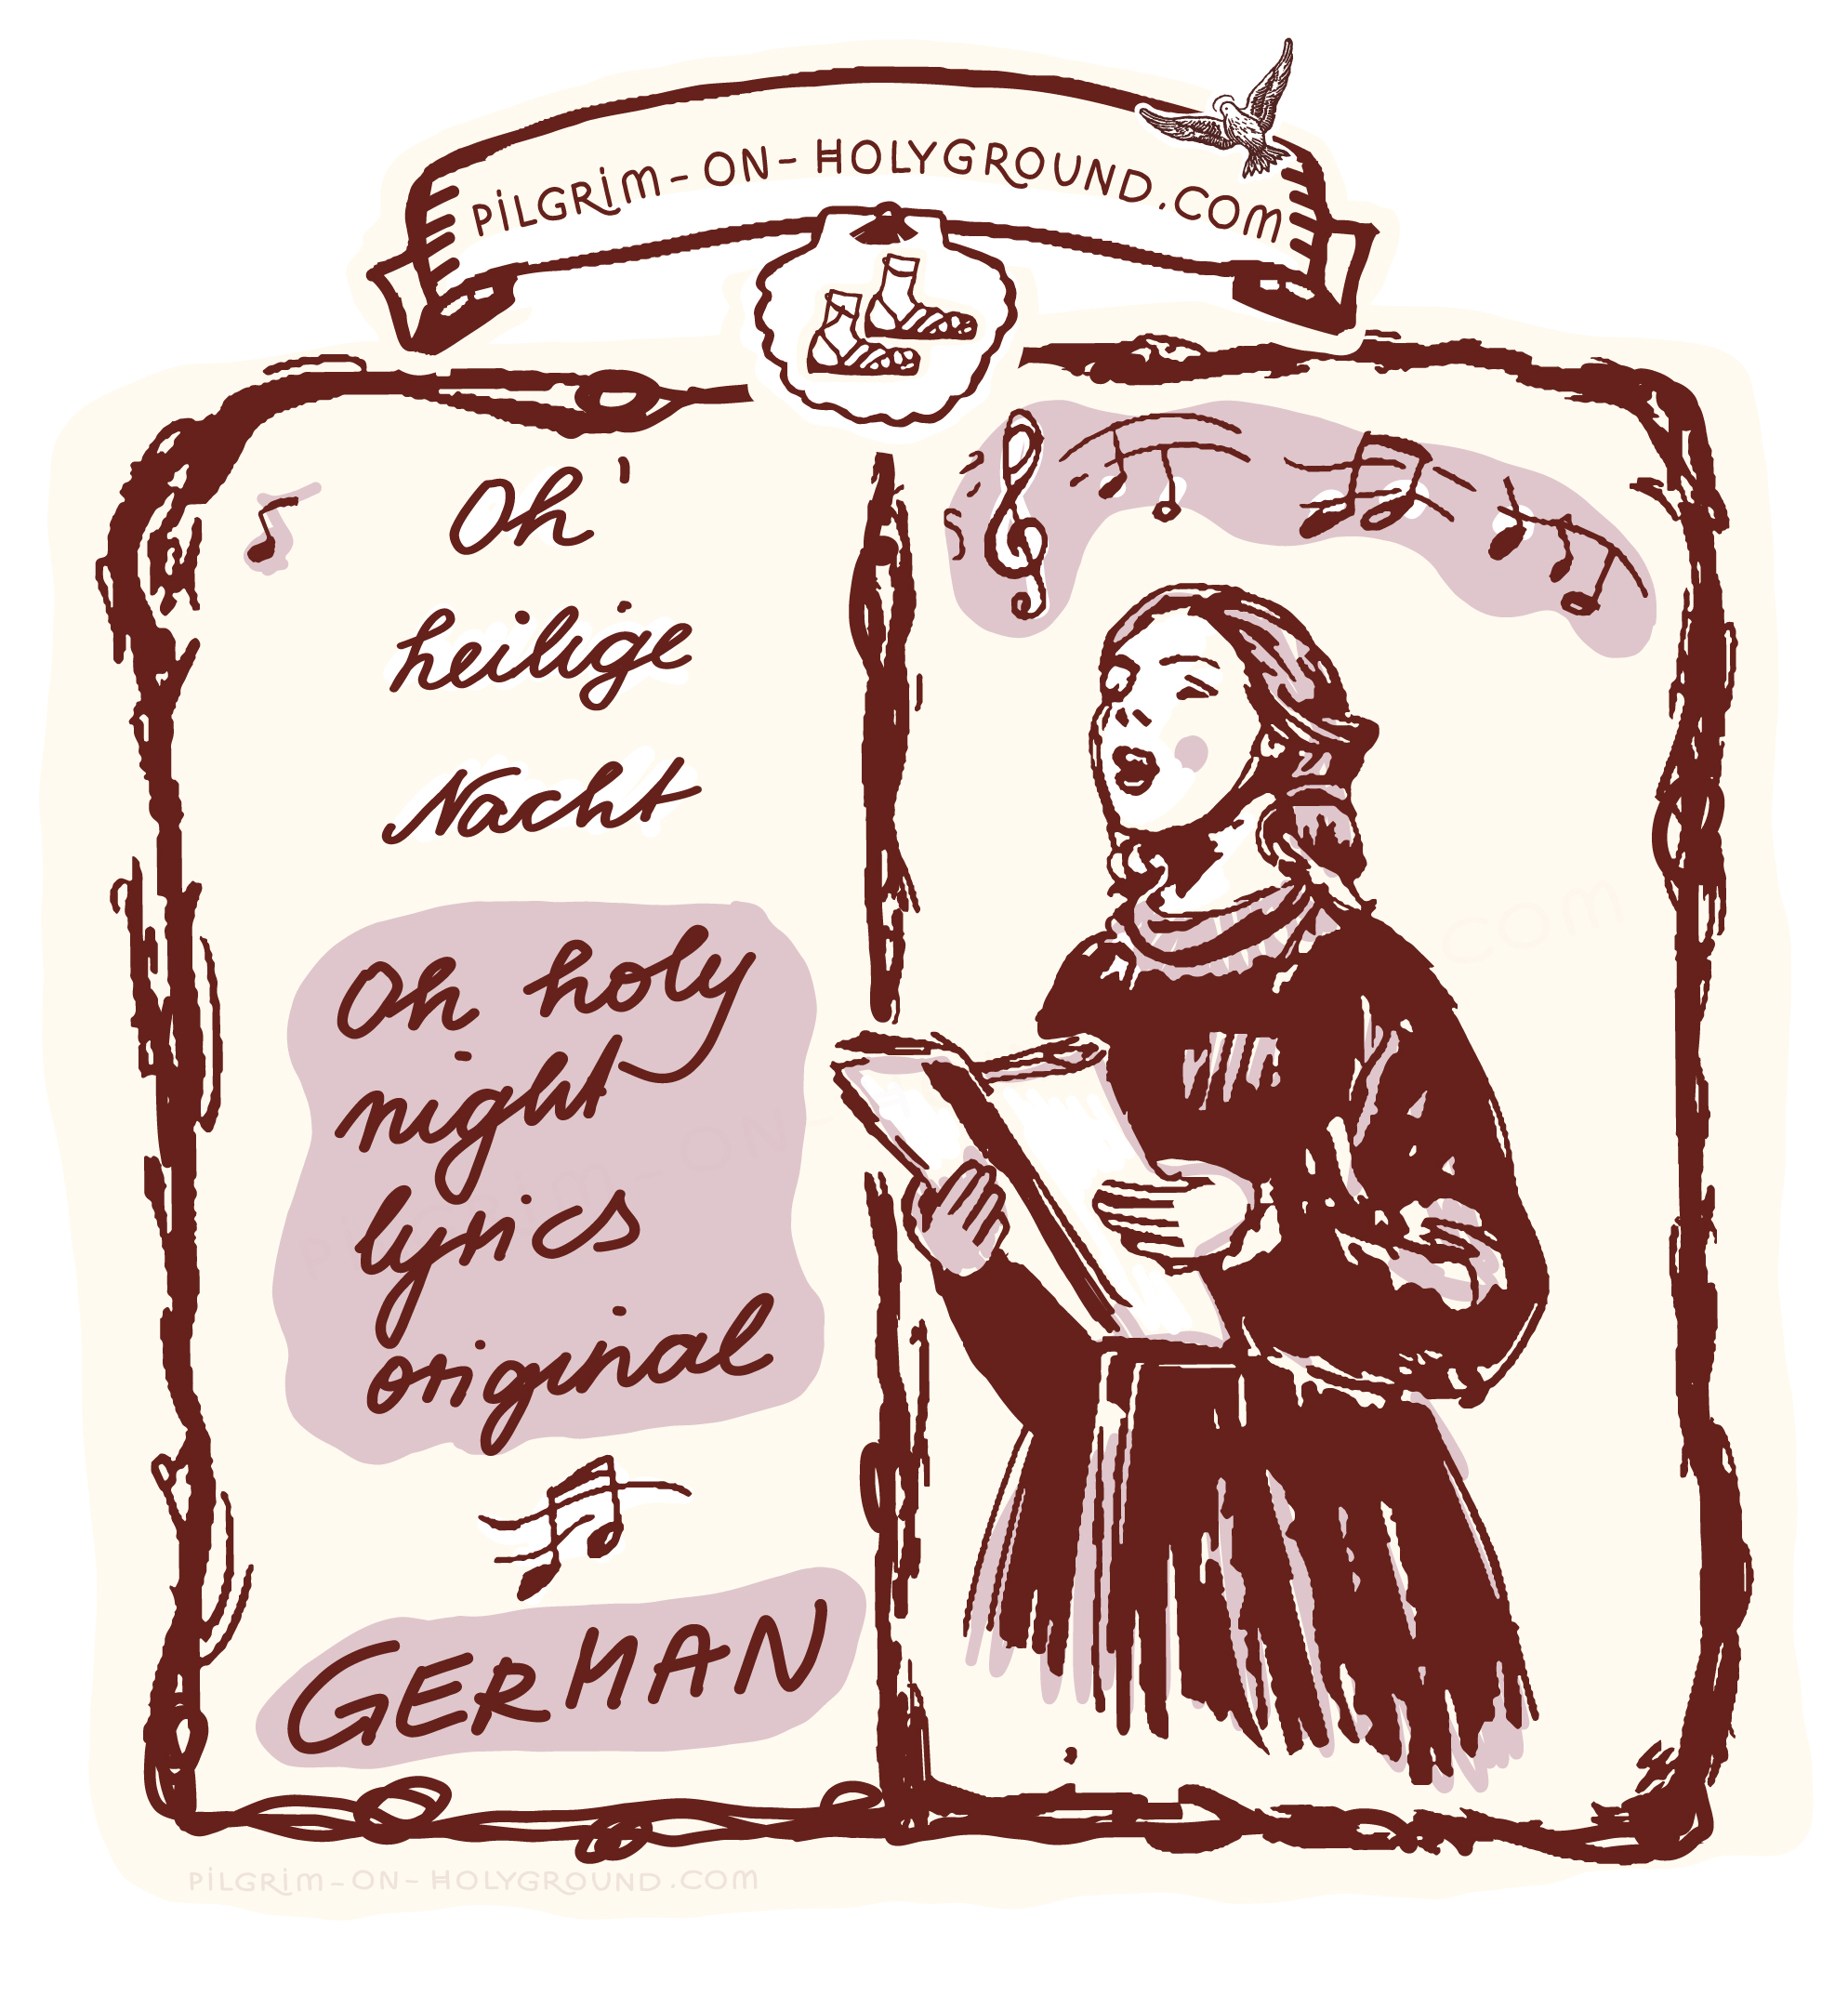 PiLGRiM-ON-HOLYGROUND.COM
Oh'
heilige
Nacht
Oh holy
night
lyrics
original
GERMAN
PiLGRiM-ON-HOLYGROUND.COM